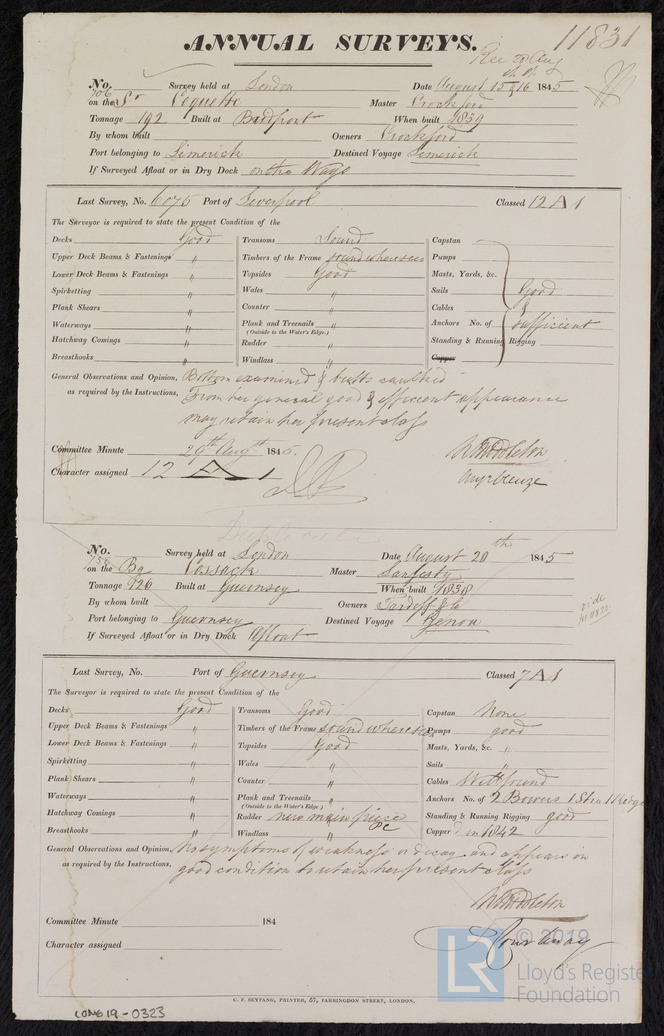 11831
ANNUAL SURVEYS.
No. 706 Survey held at London Date August 15 & 16 1845
on the Sr Coquette Master Crockford
Tonnage 192 Built at When built 1839
By whom built Owners Crockford
Port belonging to Limerick Destined Voyage Limerick
If Surveyed Afloat or in Dry Dock on the Ways
Last Survey, No. 6075 Port of Liverpool Classed 12 A 1
The Surveyor is required to state the present Condition of the
Decks Good Transoms Sound Capstan
Upper Deck Beams & Fastenings " Timbers of the Frame sound where seen Pumps
Lower Deck Beams & Fastenings " Topsides Good Masts, Yards, &c.
Spirketting " Wales " Sails Good
Plank Shears " Counter " Cables &
Waterways " Plank and Treenails " Anchors No. of sufficient
(Outside to the Water's Edge.)
Hatchway Comings " Rudder " Standing & Running Rigging
Breasthooks " Windlass " Copper
General Observations and Opinion, Bottom examined & butts caulked
as required by the Instructions, From her general good & efficient appearance
may retain her present class
Committee Minute 29th Augst 1845.
Character assigned 12 A 1
No. 758 Survey held at London Date August 20th 1845
on the Bg Cossack Master
Tonnage 126 Built at Guernsey When built 1838
By whom built Owners
Port belonging to Guernsey Destined Voyage Genoa
If Surveyed Afloat or in Dry Dock Afloat
Last Survey, No. Port of Guernsey Classed 7 A 1
The Surveyor is required to state the present Condition of the
Decks Good Transoms Good Capstan None
Upper Deck Beams & Fastenings " Timbers of the Frame sound where seen Pumps good
Lower Deck Beams & Fastenings " Topsides Good Masts, Yards, &c. "
Spirketting " Wales " Sails "
Plank Shears " Counter " Cables
Waterways " Plank and Treenails " Anchors No. of 2 Bowers 1
(Outside to the Water's Edge.)
Hatchway Comings " Rudder new main piece Standing & Running Rigging good
Breasthooks " Windlass " Copper in 1842
General Observations and Opinion, No symptoms of weakness or decay and appears in
as required by the Instructions, good condition to retain her present class
Committee Minute 184
Character assigned
C. F. SEYFANG, PRINTER, 57, FARRINGDON STREET, LONDON.
LON619-0323
LR
© 2019
Lloyd's Register
Foundation